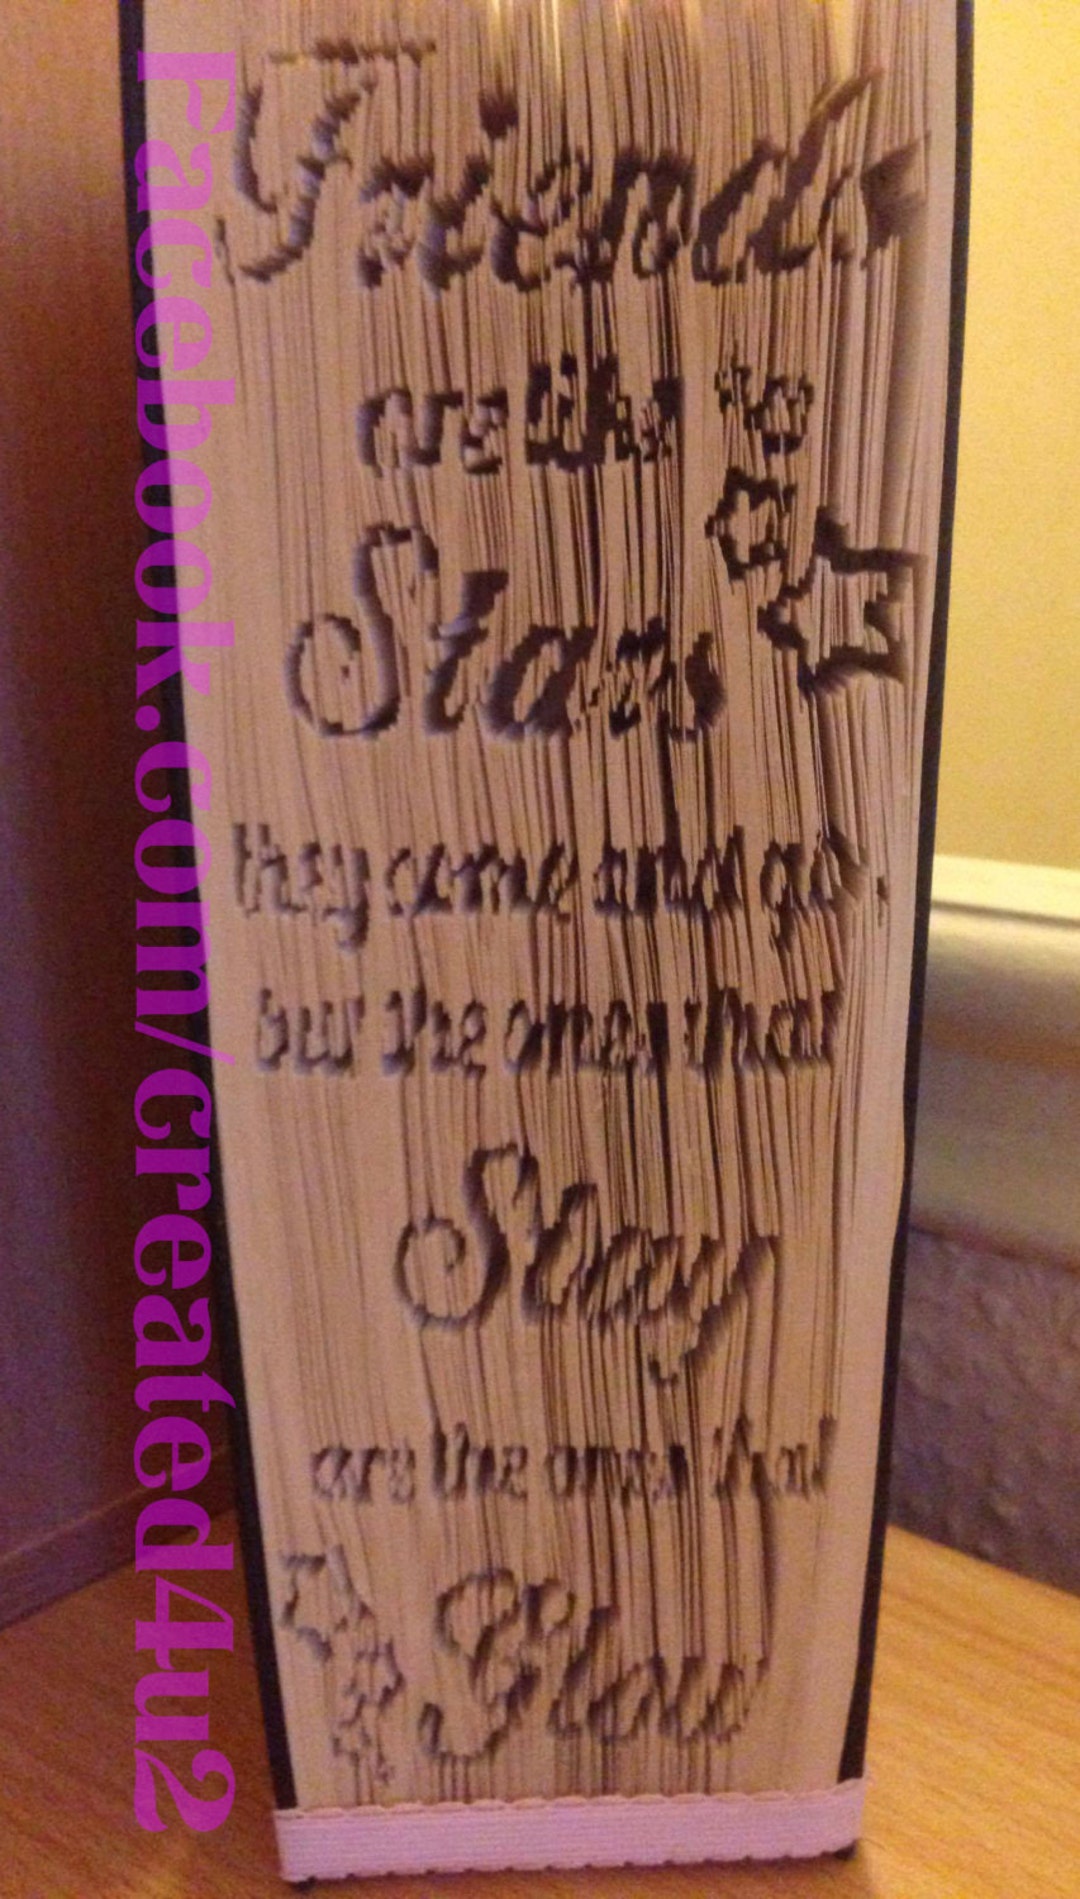 Friends
are like
Stars
they come and go,
but the ones that
Stay
are the ones that
Glow
Facebook.com/created4u2